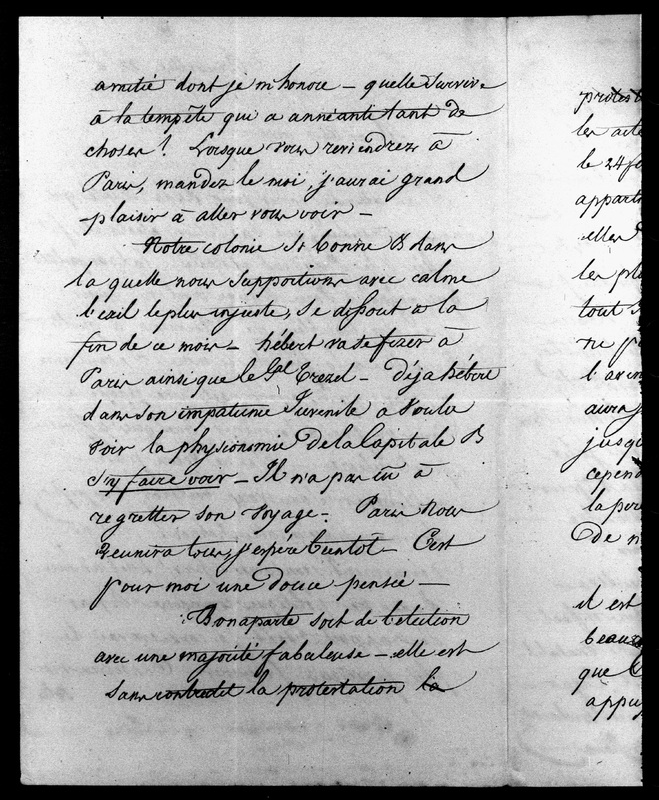 amitié dont je m'honore — quelle survive
à la tempête qui a anéanti tant de
choses! Lorsque vous reviendrez à
Paris, mandez le moi, j'aurai grand
plaisir à aller vous voir —
Notre colonie si bonne & dans
la quelle nous supportions avec calme
l'exil le plus injuste, se dissout à la
fin de ce mois — hébert va se fixer à
Paris ainsi que le Gal Trezel — Déja hébert
dans son impatience Juvenile a voulu
voir la physionomie de la Capitale &
s'y faire voir — Il n'a pas eu à
regretter son voyage — Paris nous
reunira tous, j'espére bientot — C'est
pour moi une douce pensée —
Bonaparte sort de l'élection
avec une majorité fabuleuse — elle est
sans contredit la protestation la
protest
les acte
le 24 fe
apparti
elles
les pl
tout
ne p
l'aven
aura
jusqu
cepend
la per
De n
il est
beauco
que
appuy